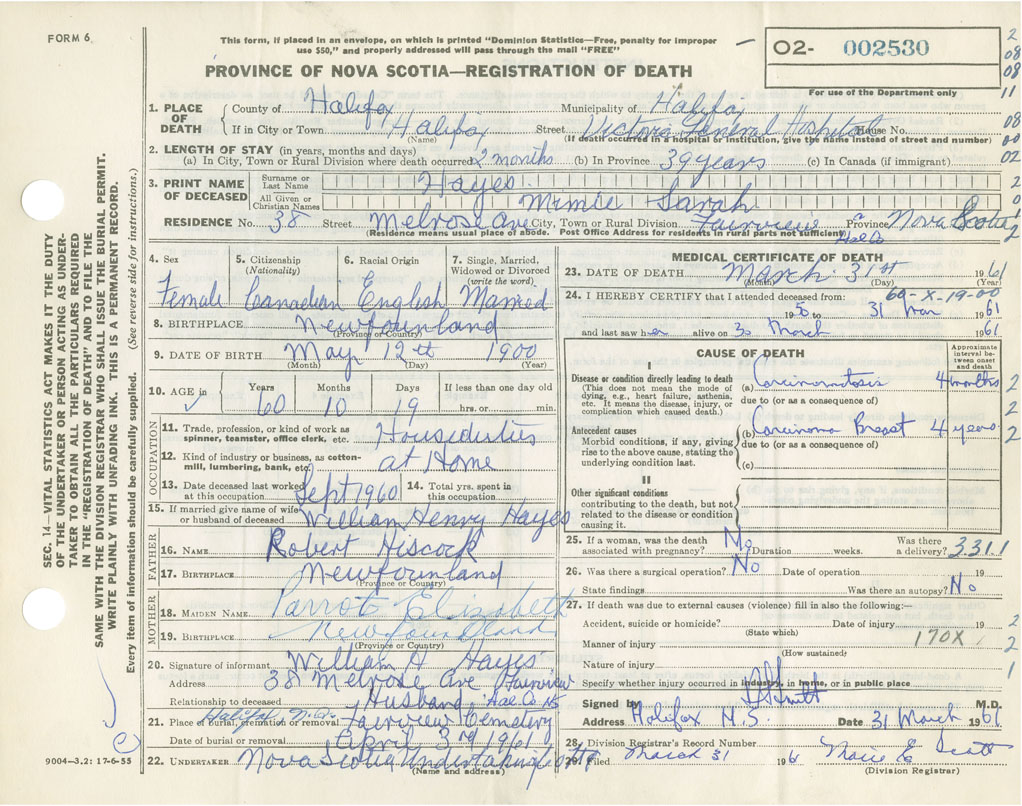 FORM 6.
This form, if placed in an envelope, on which is printed "Dominion Statistics—Free, penalty for improper
use $50," and properly addressed will pass through the mail "FREE"
O2- 002530
PROVINCE OF NOVA SCOTIA—REGISTRATION OF DEATH
For use of the Department only
2
08
08
11
08
00
02
2
0
2
SEC. 14—VITAL STATISTICS ACT MAKES IT THE DUTY
OF THE UNDERTAKER OR PERSON ACTING AS UNDER-
TAKER TO OBTAIN ALL THE PARTICULARS REQUIRED
IN THE "REGISTRATION OF DEATH" AND TO FILE THE
SAME WITH THE DIVISION REGISTRAR WHO SHALL ISSUE THE BURIAL PERMIT.
WRITE PLAINLY WITH UNFADING INK. THIS IS A PERMANENT RECORD.
Every item of information should be carefully supplied. (See reverse side for instructions.)
1. PLACE OF DEATH County of Halifax Municipality of Halifax
If in City or Town Halifax Street Victoria General Hospital House No.
(Name) (If death occurred in a hospital or institution, give the name instead of street and number)
2. LENGTH OF STAY (in years, months and days)
(a) In City, Town or Rural Division where death occurred 2 months (b) In Province 39 years (c) In Canada (if immigrant)
3. PRINT NAME OF DECEASED Surname or Last Name Hayes
All Given or Christian Names Minnie Sarah
RESIDENCE No. 38 Street Melrose Ave City, Town or Rural Division Fairview Province Nova Scotia
(Residence means usual place of abode. Post Office Address for residents in rural parts not sufficient) Hal Co
4. Sex 5. Citizenship (Nationality) 6. Racial Origin 7. Single, Married, Widowed or Divorced (write the word)
Female Canadian English Married
8. BIRTHPLACE Newfounland
(Province or Country)
9. DATE OF BIRTH May 12th 1900
(Month) (Day) (Year)
10. AGE in Years Months Days If less than one day old
60 10 19 hrs. or min.
OCCUPATION
11. Trade, profession, or kind of work as spinner, teamster, office clerk, etc. Houseduties
12. Kind of industry or business, as cotton-mill, lumbering, bank, etc. at Home
13. Date deceased last worked at this occupation Sept 1960 14. Total yrs. spent in this occupation
15. If married give name of wife or husband of deceased William Henry Hayes
FATHER
16. NAME Robert Hiscock
17. BIRTHPLACE Newfounland
(Province or Country)
MOTHER
18. MAIDEN NAME Parrot Elizabeth
19. BIRTHPLACE Newfoundland
(Province or Country)
20. Signature of informant William H Hayes
Address 38 Melrose Ave Fairview
Relationship to deceased Husband Hal Co NS
21. Place of burial, cremation or removal Fairview Cemetery
Date of burial or removal April 3rd 1961
22. UNDERTAKER Nova Scotia Undertaking
(Name and address)
9004—3.2: 17-6-55
MEDICAL CERTIFICATE OF DEATH
23. DATE OF DEATH March 31st 1961
(Month) (Day) (Year)
24. I HEREBY CERTIFY that I attended deceased from: 60-X-19-00
19 to 31 Mar 1961
and last saw her alive on 30 March 1961
CAUSE OF DEATH
Approximate interval between onset and death
I
Disease or condition directly leading to death
(This does not mean the mode of dying, e.g., heart failure, asthenia, etc. It means the disease, injury, or complication which caused death.)
(a) Carcinomatosis 4 months
due to (or as a consequence of)
Antecedent causes
Morbid conditions, if any, giving rise to the above cause, stating the underlying condition last.
(b) Carcinoma Breast 4 years
due to (or as a consequence of)
(c)
II
Other significant conditions
contributing to the death, but not related to the disease or condition causing it.
25. If a woman, was the death associated with pregnancy? No Duration weeks. Was there a delivery? 331.1
26. Was there a surgical operation? No Date of operation 19
State findings Was there an autopsy? No
27. If death was due to external causes (violence) fill in also the following:—
Accident, suicide or homicide? Date of injury 19
(State which)
Manner of injury 170X
(How sustained)
Nature of injury
Specify whether injury occurred in industry, in home, or in public place
Signed by M.D.
Address Halifax N.S. Date 31 March 1961
28. Division Registrar's Record Number
29. Filed March 31 196 Marie E Scott
(Division Registrar)
2
2
2
2
2
1